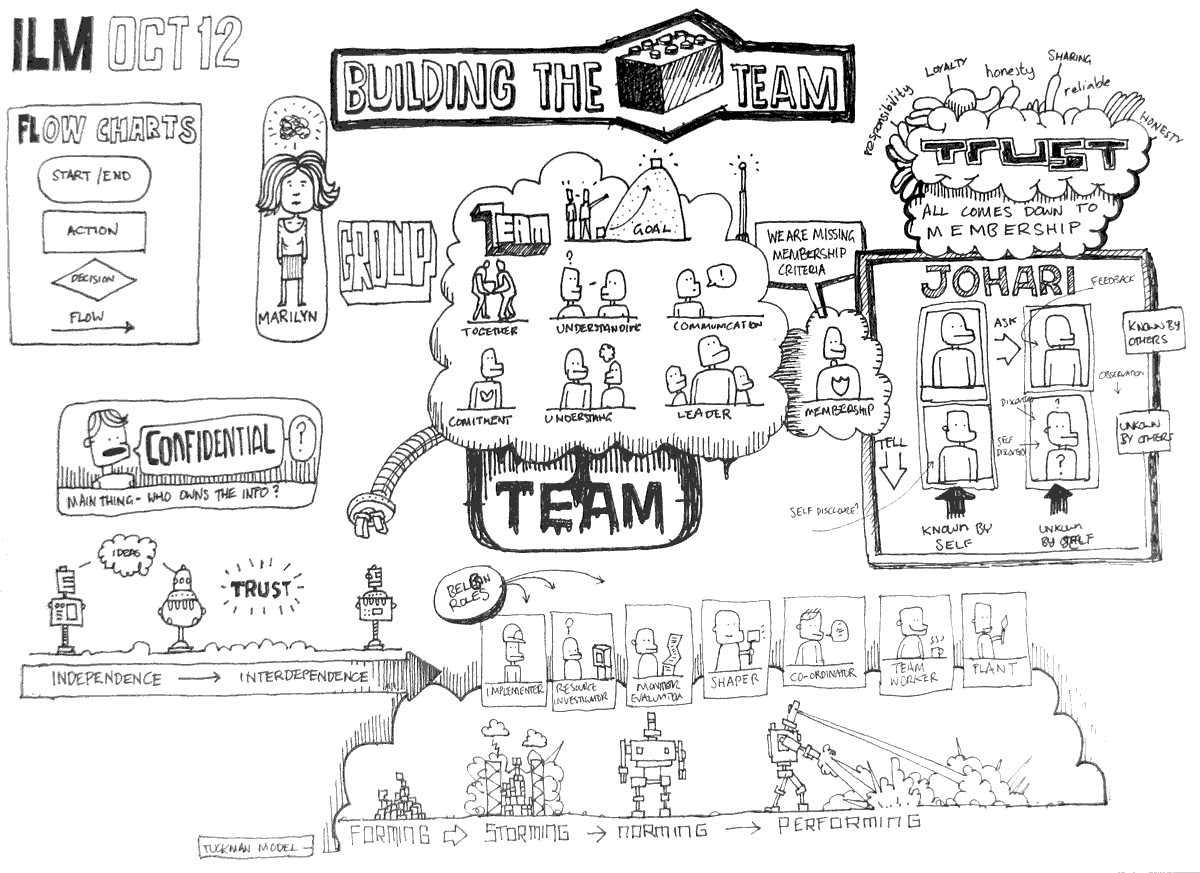 ILM OCT 12
BUILDING THE TEAM
FLOW CHARTS
START/END
ACTION
DECISION
FLOW
MARILYN
GROUP
TEAM
GOAL
TOGETHER
UNDERSTANDING
COMMUNICATION
COMITMENT
UNDERSTANG
LEADER
TEAM
WE ARE MISSING
MEMBERSHIP
CRITERIA
MEMBERSHIP
responsibility
LOYALTY
honesty
SHARING
reliable
HONESTY
TRUST
ALL COMES DOWN TO
MEMBERSHIP
JOHARI
FEEDBACK
ASK
KNOWN BY
OTHERS
OBSERVATION
UNKOWN
BY OTHERS
TELL
SELF
SELF DISCLOSURE?
KNOWN BY
SELF
UNKOWN
BY SELF
CONFIDENTIAL
?
MAIN THING - WHO OWNS THE INFO?
IDEAS
TRUST
INDEPENDENCE → INTERDEPENDENCE
BELBIN
ROLES
IMPLEMENTER
RESOURCE
INVESTIGATOR
MONITOR
EVALUATOR
SHAPER
CO-ORDINATOR
TEAM
WORKER
PLANT
FORMING ⇨ STORMING → NORMING → PERFORMING
TUCKMAN MODEL